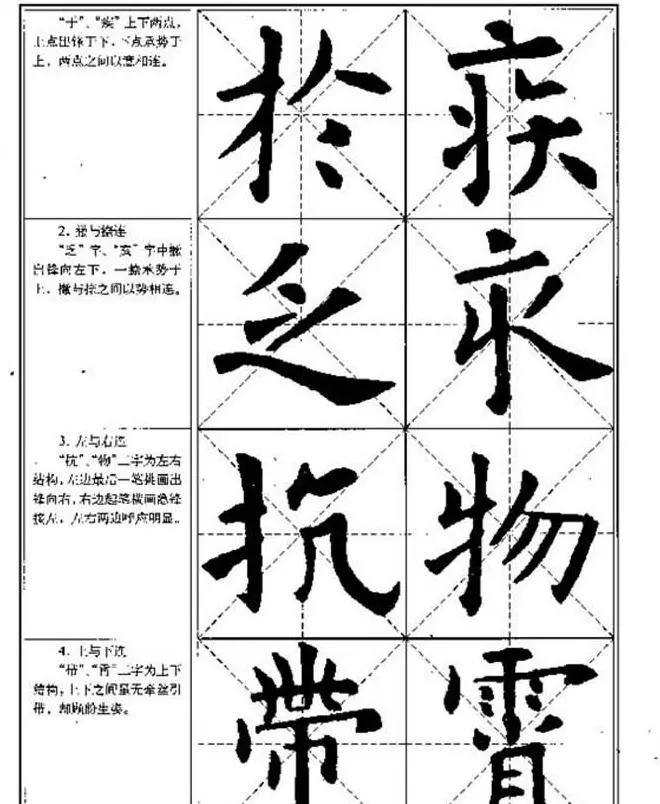 “于”、“疾”上下两点，
上点出锋于下，下点承势于
上，两点之间以意相连。
於 疾
2．撇与捺连
“乏”字、“亥”字中撇
出锋向左下，一捺承势于
上，撇与捺之间以势相连。
乏
3．左与右连
“抗”、“物”二字为左右
结构，左边最后一笔挑画出
锋向右，右边起笔横画急锋
接左，左右两边呼应明显。
抗 物
4．上与下连
“带”、“霄”二字为上下
结构，上下之间虽无牵丝引
带，却顾盼生姿。
帶 霄